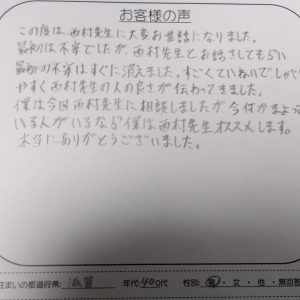 お客様の声
この度は、西村先生に大変お世話になりました。
最初は不安でしたが、西村先生とお話させてもらい
最初の不安はすぐに消えました。すごくていねいでしゃべり
やすく西村先生の人の良さが伝わってきました。
僕は今回西村先生に相談しましたが今何かまよって
いる人がいるなら僕は西村先生オススメします。
本当にありがとうございました。
住まいの都道府県: 滋賀 年代: 40代 性別: 男・女・他・無回答